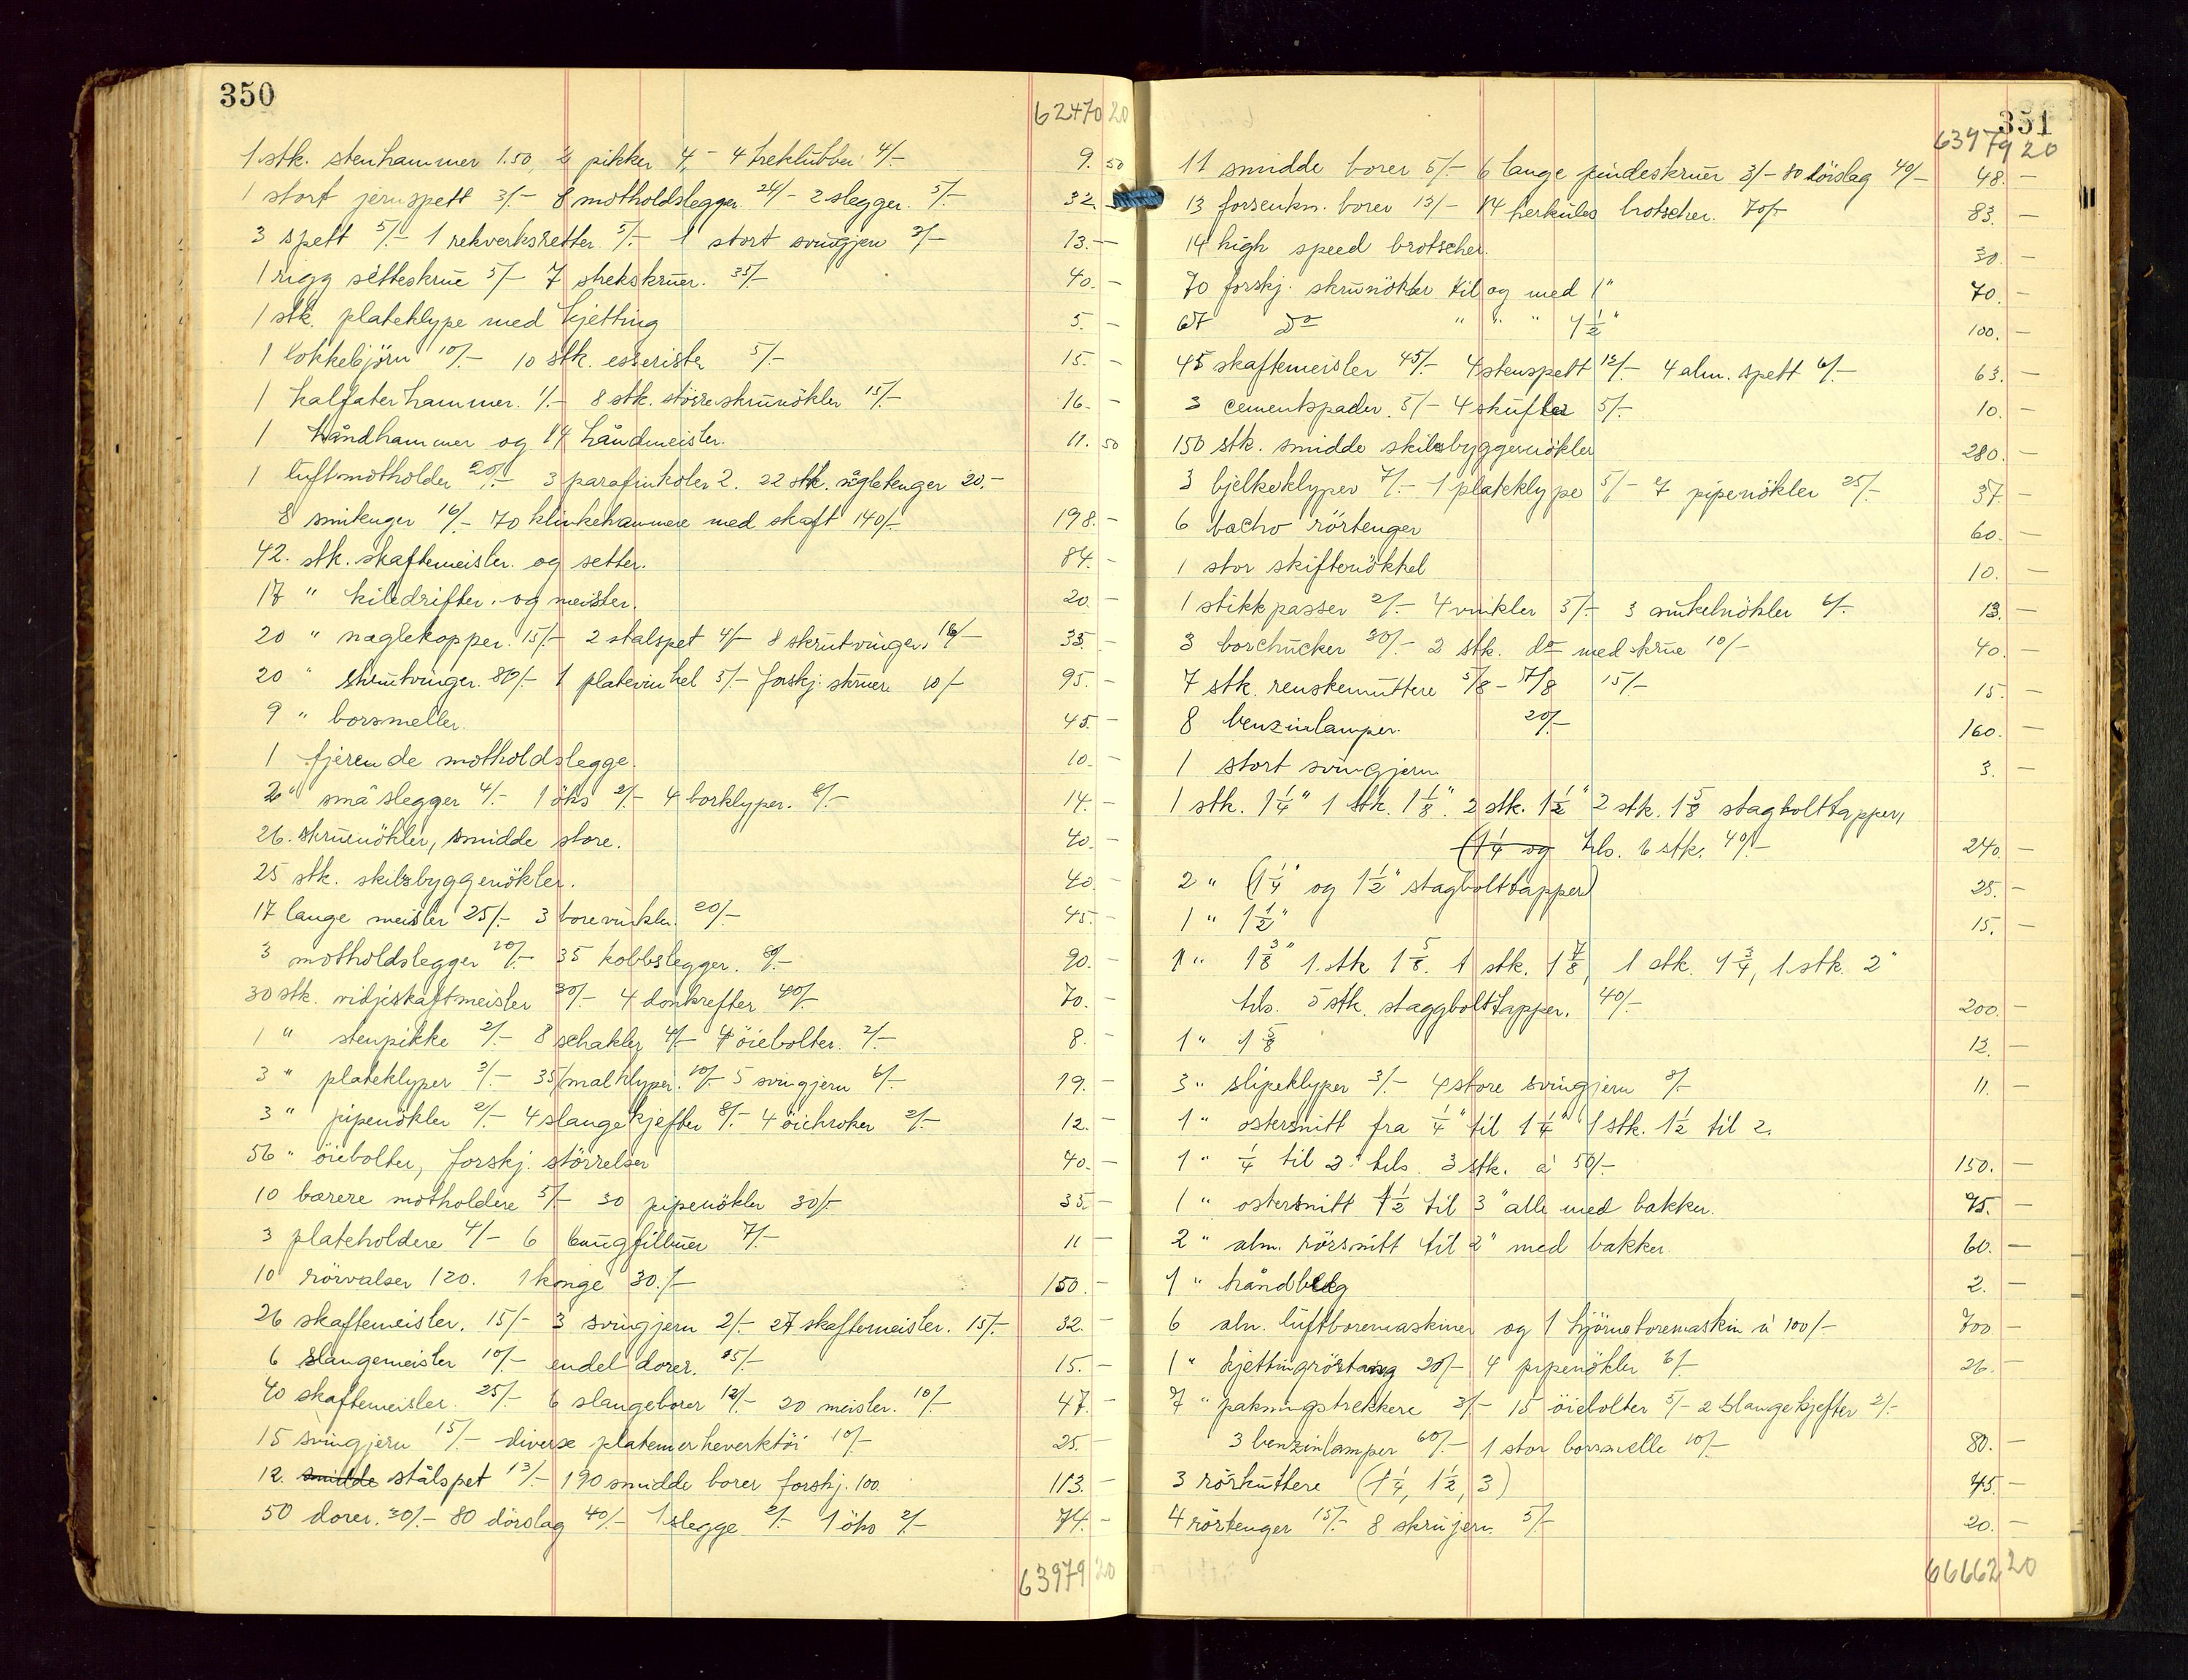 350
62470 20
1 stk. stenhammer 1.50, 2 pikker 4,- 4 treklubber 4/- 9. 50
1 stort jernspett 3/- 8 motholdslegger 24/- 2 slegger. 5/- 32. -
3 spett 5/- 1 rekverksretter 5/- 1 stort svingjern 3/- 13. -
1 rigg setteskrue 5/- 7 strekskruer. 35/- 40. -
1 stk. plateklype med kjetting 5. -
1 lokkebjörn 10/- 10 stk. esserister 5/- 15. -
1 kalfaterhammer. 1/- 8 stk. större skrunökler 15/- 16. -
1 håndhammer og 14 håndmeisler. 11. 50
1 luftmotholder 20/- 3 parafinkoler 2. 22 stk. någletenger 20.-
8 smitenger 16/- 70 klinkehammere med skaft 140/- 198. -
42. stk. skaftemeisler. og setter. 84. -
17 " kiledrifter. og meisler. 20. -
20 " naglekopper. 15/- 2 stalspet 4/- 8 skrutvinger. 16/- 35. -
20 " skrutvinger. 80/- 1 platevinkel 5/- forskj. skruer 10/- 95. -
9 " borsmeller. 45. -
1 fjerende motholdslegge. 10. -
2 " små slegger 4/- 1 öks 2/- 4 borklyper. 8/- 14. -
26. skruenökler, smidde store. 40. -
25 stk. skibsbyggenökler. 40. -
17 lange meisler 25/- 3 borevinkler. 20/- 45. -
3 motholdslegger 10/- 35 kobbslegger. 90. -
30 stk. vidjeskaftmeisler 30/- 4 donkrefter 40/- 70. -
1 " stenpikke 2/- 8 schakler 4/- 4 öiebolter. 2/- 8. -
3 " plateklyper 3/- 35 smalklyper. 10/- 5 svingjern 6/- 19. -
3 " pipenökler 2/- 4 slangekjefter 8/- 4 öiekroker 2/- 12. -
56 " öiebolter, forskj. störrelser 40. -
10 bærere motholdere 5/- 30 pipenökler 30/- 35. -
3 plateholdere 4/- 6 7/- 11 -
10 rörvalser 120. 1 konge 30./- 150. -
26 skaftemeisler. 15/- 3 svingjern 2/- 27 skaftemeisler. 15/- 32. -
6 slangemeisler 10/- endel dorer. 15. -
40 skaftemeisler. 25/- 6 slangeborer 12/- 20 meisler. 10/- 47. -
15 svingjern 15/- diverse platemerkeverktöi 10/- 25. -
12. smidde stålspet 13/- 190 smidde borer forskj. 100. 113. -
50 dorer. 30/- 80 dörslag 40/- 1 slegge 2/- 1 öks 2/- 74. -
63979 20
351
63979 20
11 smidde borer 5/- 6 lange pindeskruer 3/- 80 dörslag 40/- 48. -
13 forsenkn. borer 13/- 14 herkules brotscher. 70/- 83. -
14 high speed brotscher. 30. -
70 forskj. skrunökler til og med 1" 70. -
67 Do " " " 4 1/2" 100. -
45 skaftemeisler 45/- 4 stenspett 12/- 4 alm. spett 6/- 63. -
3 cementspader. 5/- 4 skufler 5/- 10. -
150 stk. smidde skibsbyggenökler 280. -
3 bjelkeklyper 7/- 1 plateklype 5/- 7 pipenökler 25/- 37. -
6 bacho rörtenger 60. -
1 stor skiftenökkel 10. -
1 stikkpasser 2/- 4 vinkler 5/- 3 sinkelnökler 6/- 13. -
3 borchucker 30/- 2 stk. do med skrue 10/- 40. -
7 stk. renskemuttere 5/8 - 7/8 15/- 15. -
8 benzinlamper. 20/- 160. -
1 stort svingjern 3. -
1 stk. 1 1/4" 1 stk. 1 1/8". 2 stk. 1 1/2" 2 stk. 1 5/8 stagbolttapper,
(1 1/4 og tils. 6 stk. 40/- 240. -
2 " (1 1/4" og 1 1/2" stagbolttapper) 25. -
1 " 1 1/2" 15. -
1 " 1 3/8" 1. stk 1 5/8. 1 stk. 1 7/8, 1 stk. 1 3/4, 1 stk. 2"
tils. 5 stk. staggbolttapper. 40/- 200. -
1 " 1 5/8 12. -
3 " slipeklyper 3/- 4 store svingjern 8/- 11. -
1 " ostersnitt fra 1/4" til 1 1/4" 1 stk. 1 1/2 til 2.
1 " 1/4 til 2" tils. 3 stk. à 50/- 150. -
1 " ostersnitt 1 1/2 til 3" alle med bakker. 75. -
2 " alm. rörsnitt til 2" med bakker 60. -
1 " håndbelg 2. -
6 alm. luftboremaskiner og 1 hjörneboremaskin à 100/- 700 -
1 " kjettingrörtang 20/- 4 pipenökler 6/- 26. -
7 " pakningstrekkere 3/- 15 öiebolter 5/- 2 slangekjefter 2/-
3 benzinlamper 60/- 1 stor borsmelle 10/- 80. -
3 rörkuttere (1 1/4, 1 1/2, 3) 45. -
4 rörtenger 15/- 8 skrujern. 5/- 20. -
66662 20